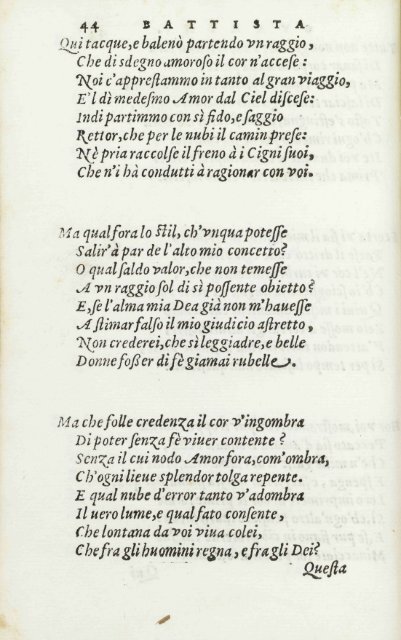 44 BATTISTA
Qui tacque, e balenò partendo vn raggio,
Che di sdegno amoroso il cor n'accese:
Noi c'apprestammo in tanto al gran viaggio,
E'l dì medesmo Amor dal Ciel discese:
Indi partimmo con sì fido, e saggio
Rettor, che per le nubi il camin prese:
Nè pria raccolse il freno à i Cigni suoi,
Che n'i hà condutti à ragionar con voi.
Ma qual fora lo stil, ch'vnqua potesse
Salir'à par de l'alto mio concetto?
O qual saldo valor, che non temesse
A vn raggio sol di sì possente obietto?
E, se l'alma mia Dea già non m'hauesse
A stimar falso il mio giudicio astretto,
Non crederei, che sì leggiadre, e belle
Donne foßer di fè giamai rubelle.
Ma che folle credenza il cor v'ingombra
Di poter senza fè viuer contente?
Senza il cui nodo Amor fora, com'ombra,
Ch'ogni lieue splendor tolga repente.
E qual nube d'error tanto v'adombra
Il uero lume, e qual fato consente,
Che lontana da voi viua colei,
Che fra gli huomini regna, e fra gli Dei?
Questa